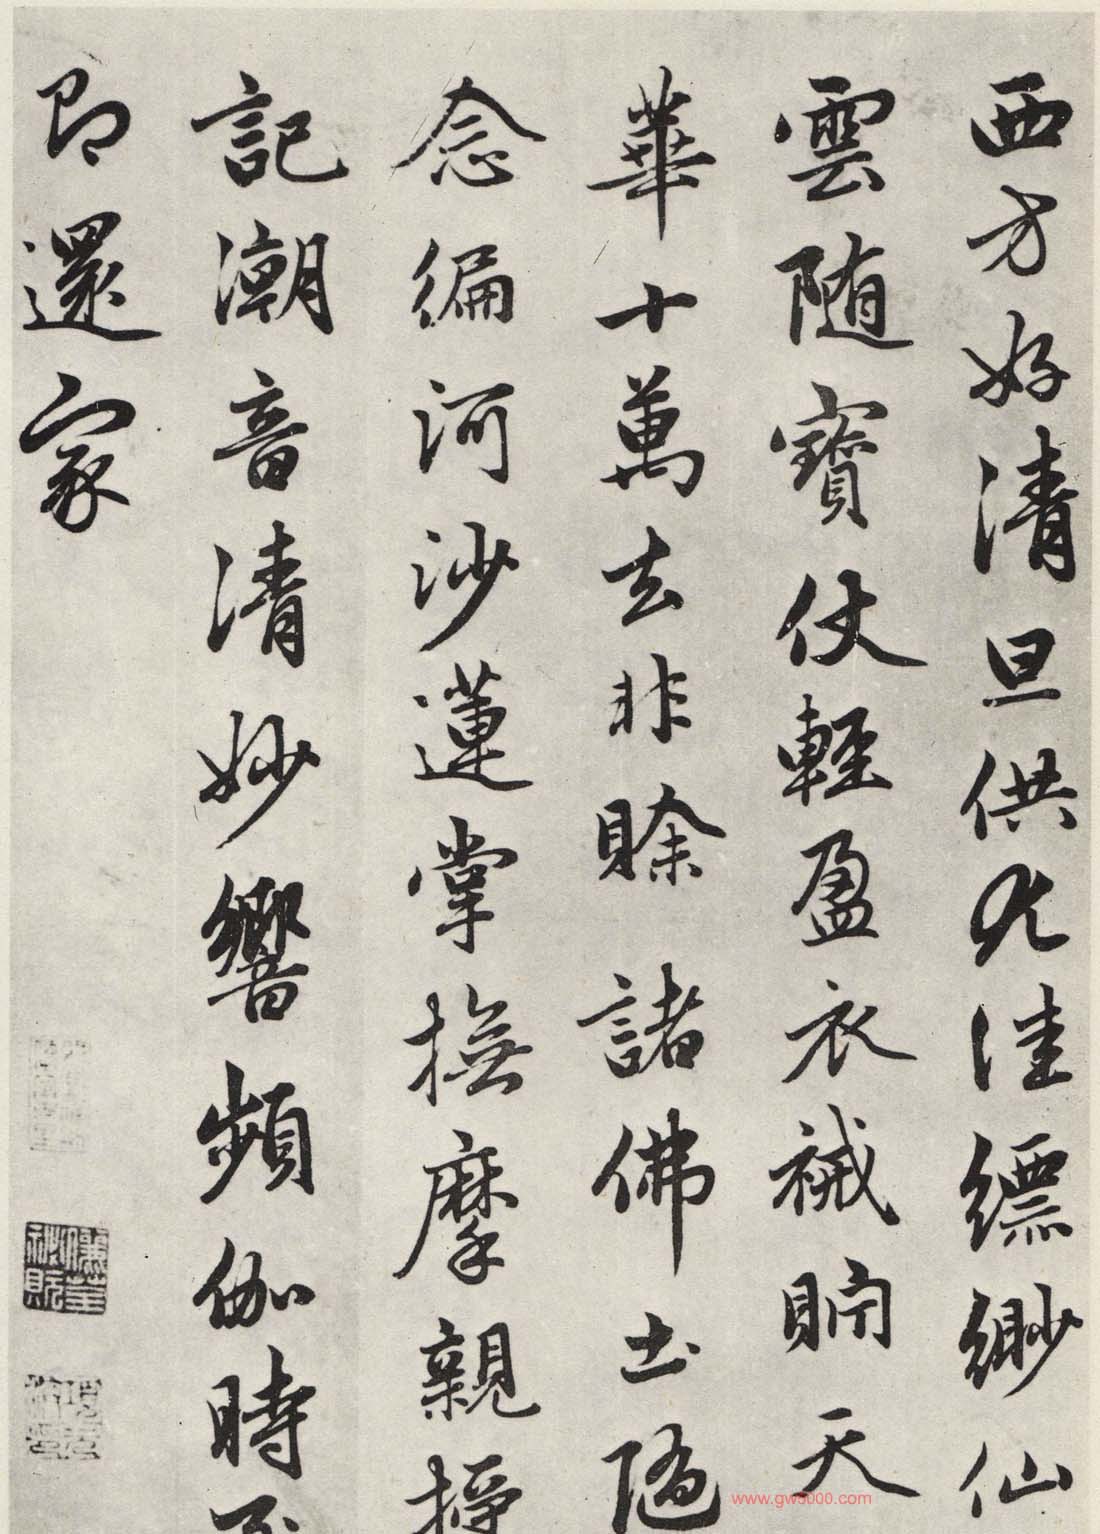 西方好清旦供尤佳縹緲仙
雲隨寶仗輕盈衣裓貯天
華十萬去非賒 諸佛土隨
念遍河沙蓮掌撫摩親授
記潮音清妙響頻伽時至
即還家
www.gw5000.com